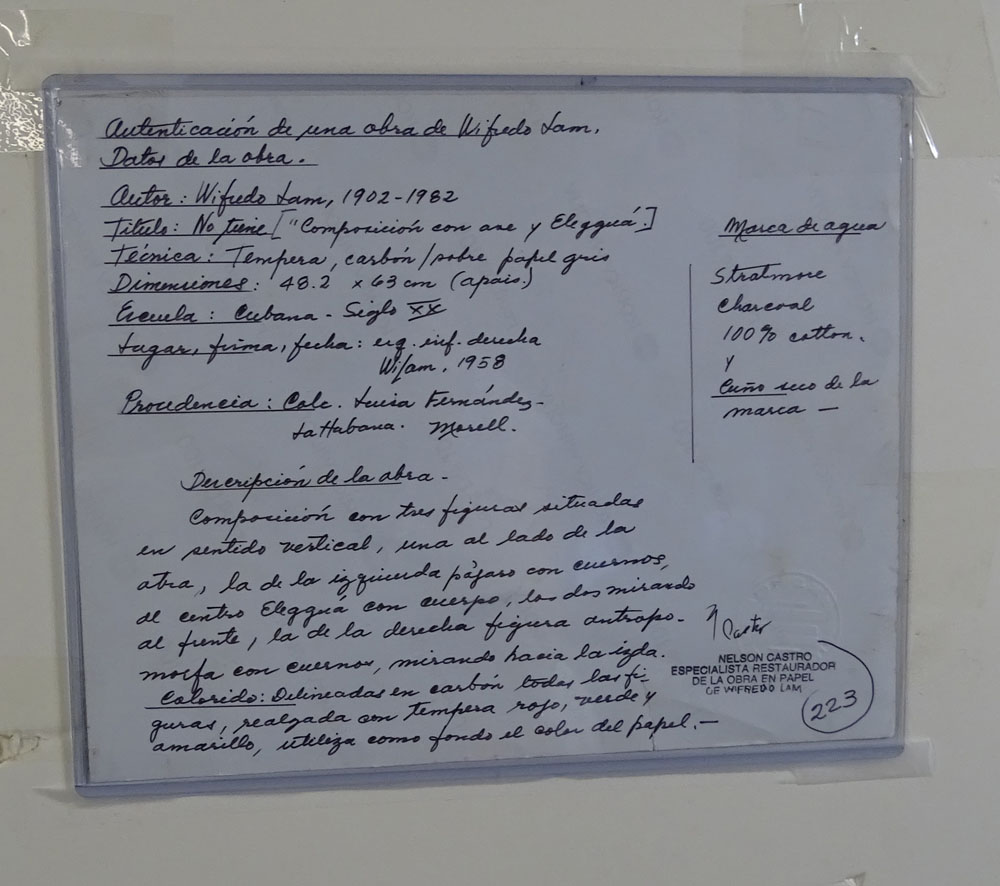 Autenticación de una obra de Wifredo Lam.
Datos de la obra.
Autor: Wifredo Lam, 1902-1982
Título: No tiene ["Composición con ave y Eleggúa".]
Técnica: Tempera, carbón/sobre papel gris
Dimensiones: 48.2 x 63 cm (apais.)
Escuela: Cubana - Siglo XX
Lugar, firma, fecha: izq. inf. derecha
Wifam, 1958
Procedencia: Colc. Luisa Fernández-
La Habana. Morell.
Marca de agua
Stratmore
Charcoal
100% cotton.
y
Cuño seco de la
marca —
Descripción de la obra.
Composición con tres figuras situadas
en sentido vertical, una al lado de la
otra, la de la izquierda pájaro con cuernos,
al centro Eleggúa con cuerpo, los dos mirando
al frente, la de la derecha figura antropo-
morfa con cuernos, mirando hacia la izda.
Colorido: Delineadas en carbón todas las fi-
guras, realzada con tempera rojo, verde y
amarillo, utiliza como fondo el color del papel.—
N Castro
NELSON CASTRO
ESPECIALISTA RESTAURADOR
DE LA OBRA EN PAPEL
DE WIFREDO LAM
223